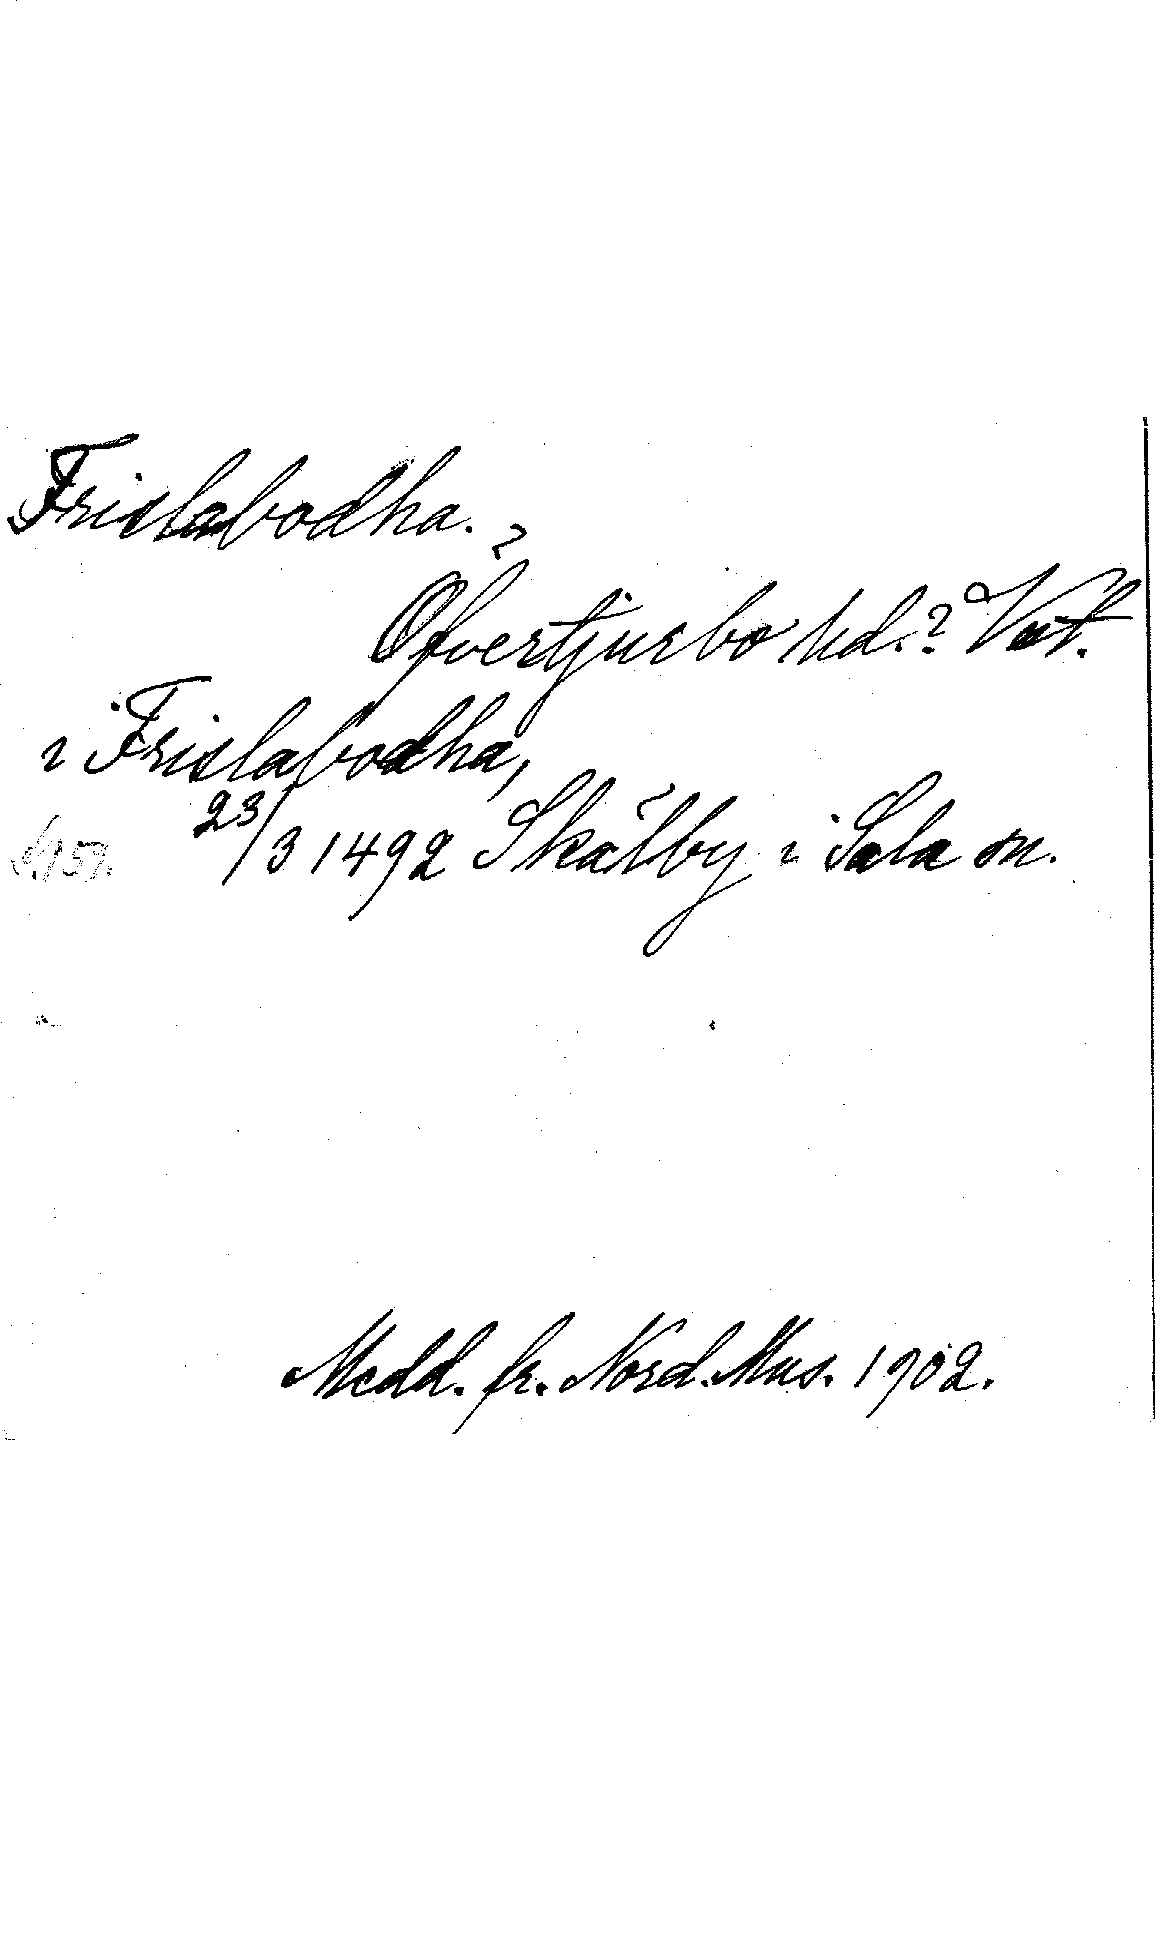 Frislabodha. ?
Öfvertjurbo hd.? Vst.
i Frislabodha,
23/3 1492 Skålby i Sala sn.
Medd. fr. Nord. Mus. 1902.